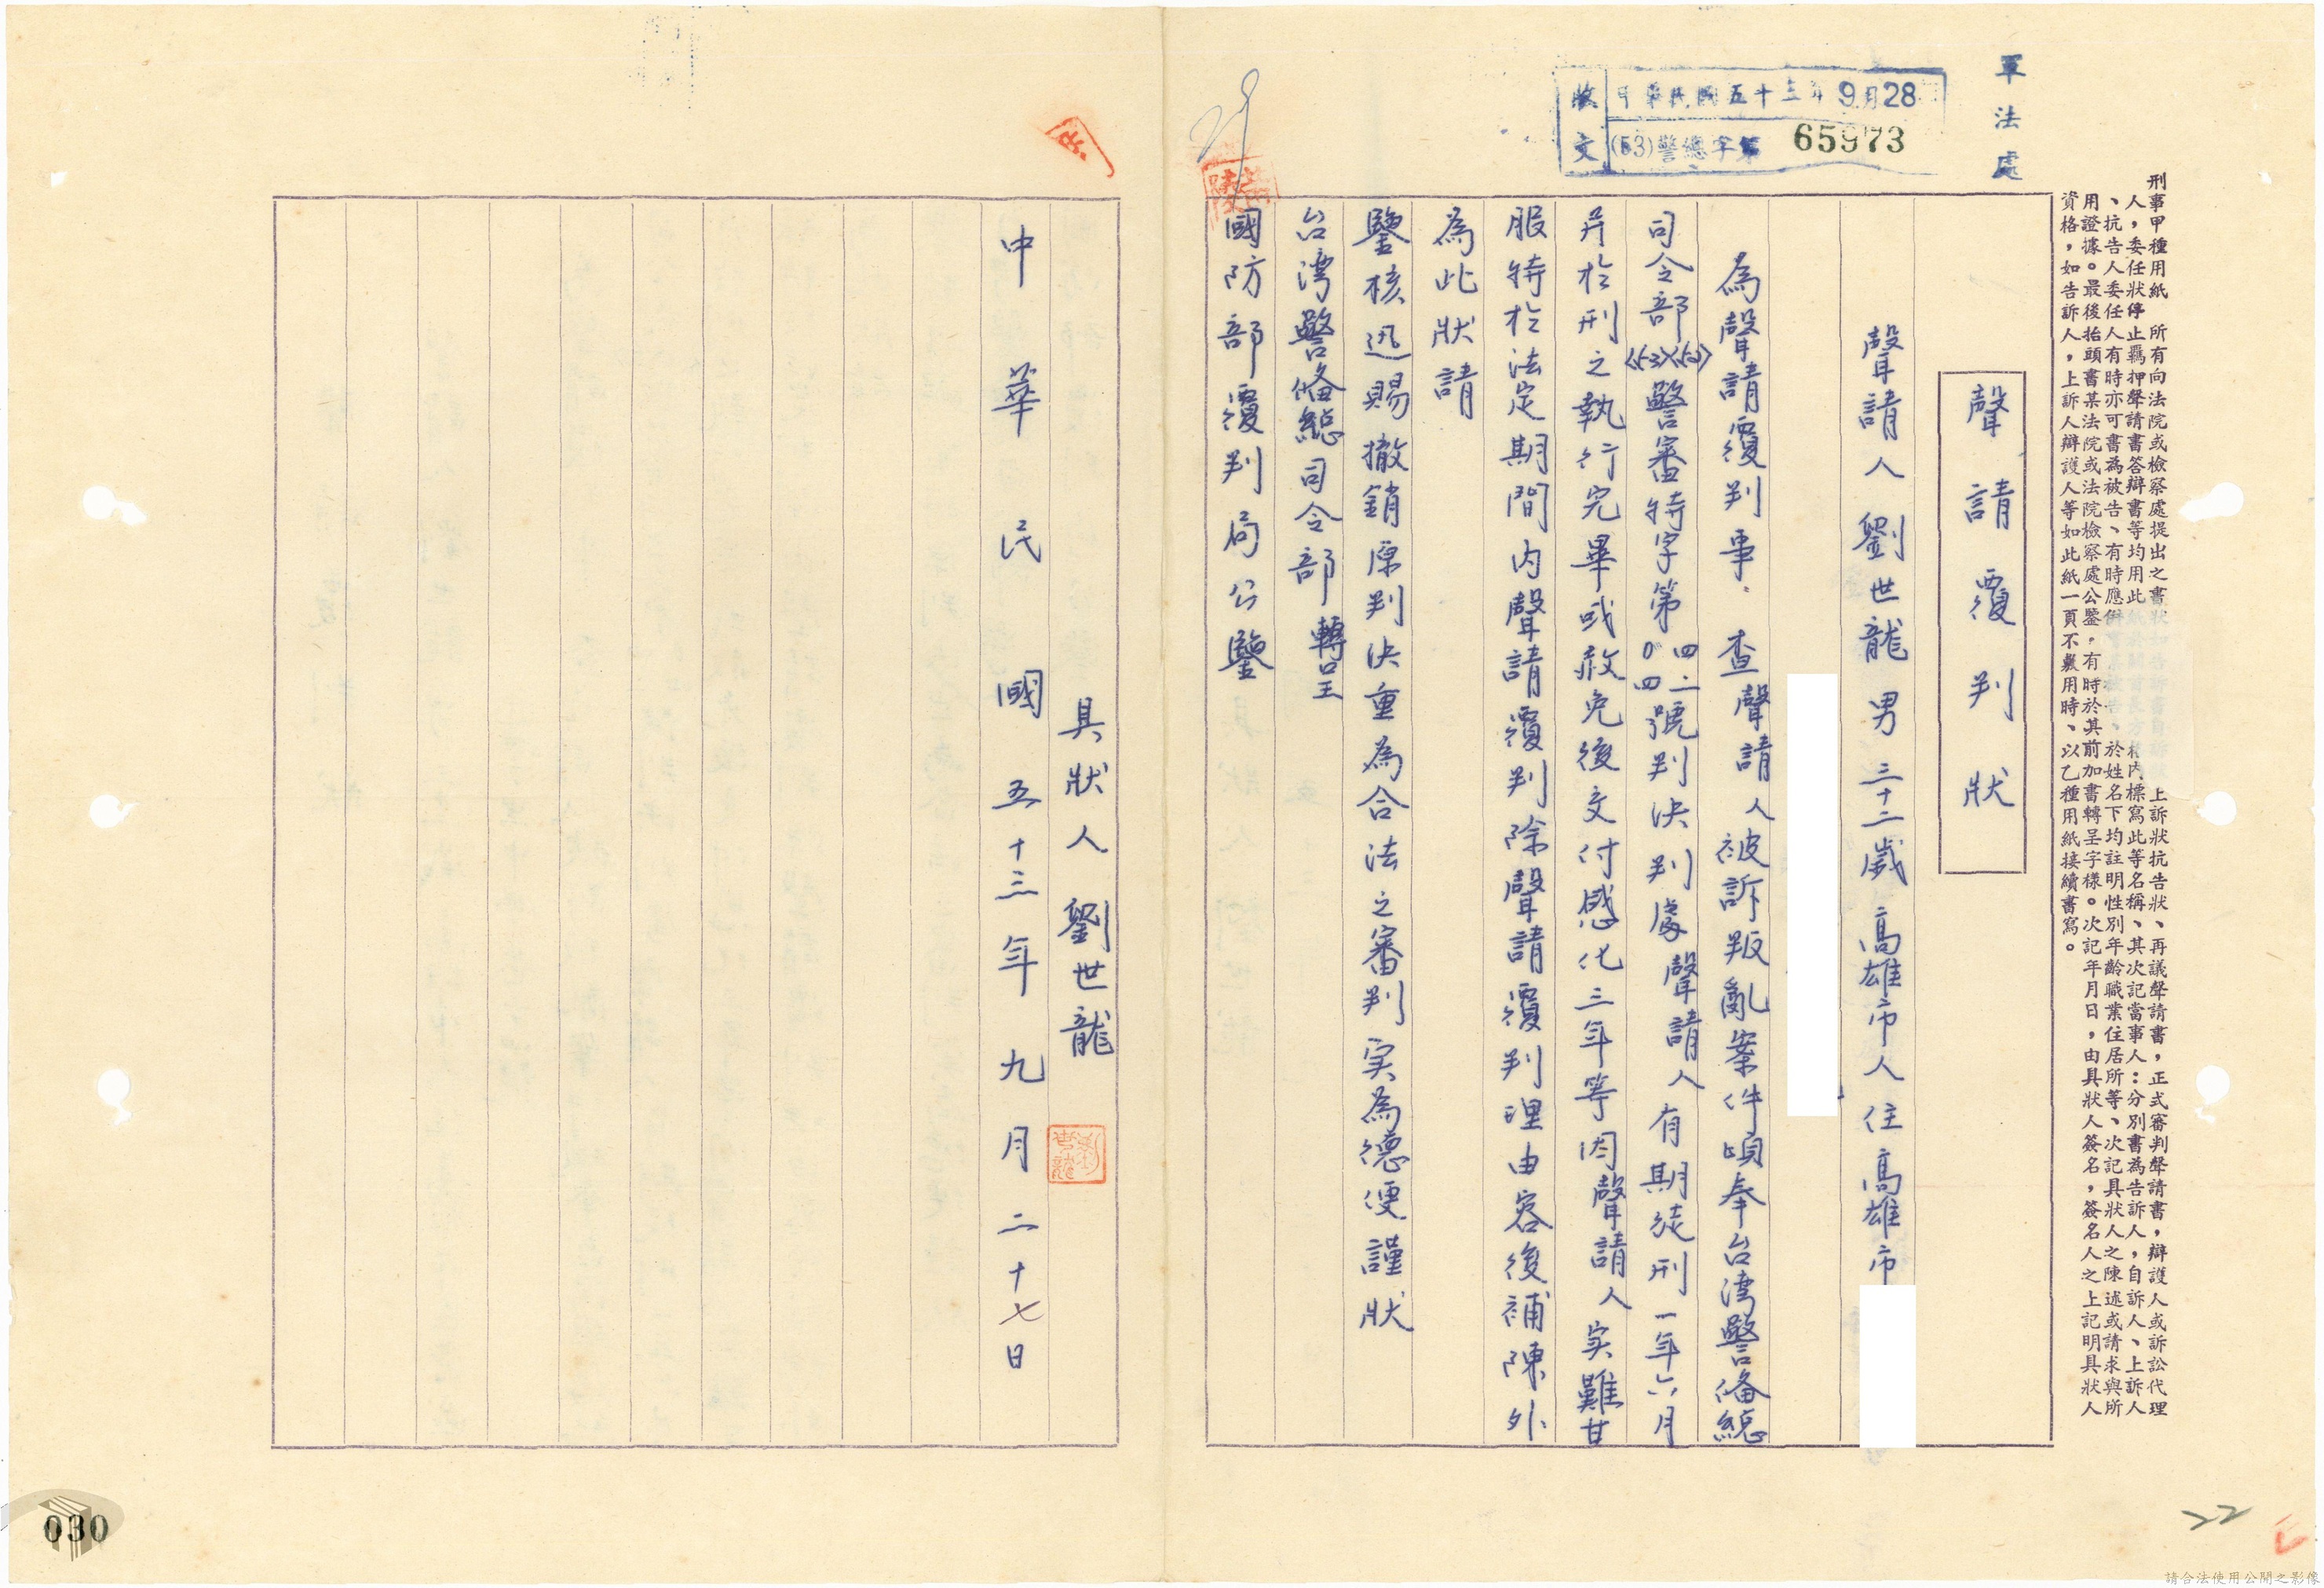 軍法處
收文
中華民國五十三年9月28
(53)警總字第 65973
刑事甲種用紙 所有向法院或檢察處提出之書狀 上訴狀抗告狀、再議聲請書，正式審判聲請書，辯護人或訴訟代理
人，委任狀停止羈押聲請書答辯書等均用此 內標寫此等名稱、其次記當事人：分別書為告訴人，自訴人、上訴人
、抗告人委任人有時亦可書為被告、有時應併 、於姓名下均註明性別年齡職業住居所等、次記具狀人之陳述或請求與所
用證據。最後抬頭書某法院或法院檢察處公鑒，有時於其前加書轉呈字樣。次記年月日，由具狀人簽名，簽名人之上記明具狀人
資格，如告訴人，上訴人辯護人等如此紙一頁不敷用時、以乙種用紙接續書寫。
聲請覆判狀
聲請人劉世龍 男 三十二歲 高雄市人住高雄市
為聲請覆判事．查聲請人被訴叛亂案件頃奉台湾警備總
司令部(53)(53)警審特字第四二 0四號判決判處聲請人有期徒刑一年六月
并於刑之執行完畢或赦免後交付感化三年等因聲請人实難甘
服特於法定期間內聲請覆判除聲請覆判理由容後補陳外
為此狀請
鑒核迅賜撤銷原判決重為合法之審判实為德便謹狀
台湾警備總司令部 轉呈
國防部覆判局公鑒
具狀人劉世龍
劉世龍
中華民國五十三年九月二十七日
22
030
請合法使用公開之影像